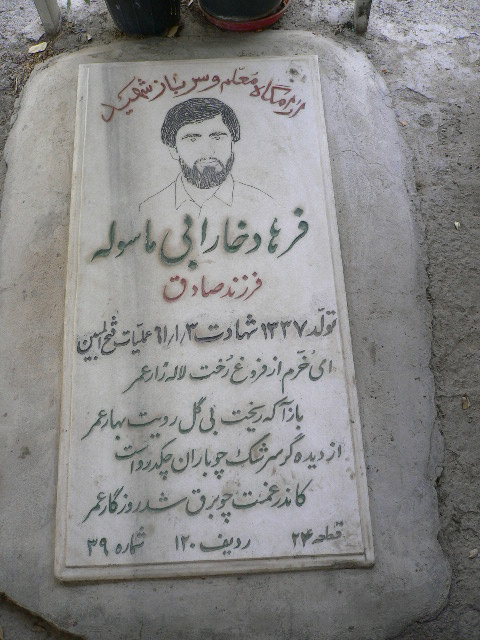 آرامگاه معلم و سرباز شهید
فرهاد خارابی ماسوله
فرزند صادق
تولد ۱۳۳۷ شهادت ۶۱/۱/۳ عملیات فتح المبین
ای خرم از فروغ رخت لاله زار عمر
بازآ که ریخت بی گل رویت بهار عمر
از دیده گر سرشک چو باران چکد رواست
کاندر غمت چو برق شد روزگار عمر
قطعه ۲۴ ردیف ۱۲۰ شماره ۳۹